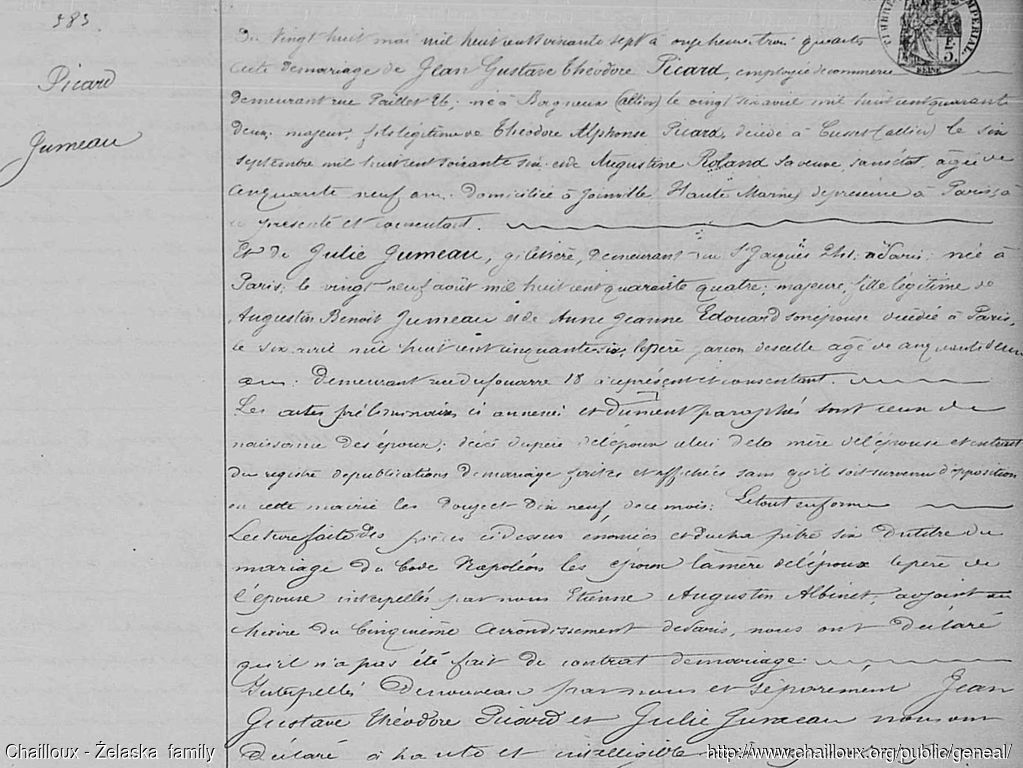 383
Picard
Jumeau
TIMBRE IMPERIAL
SEINE
Du vingt huit mai mil huit cent soixante sept à onze heures trois quarts
acte de mariage de Jean Gustave Théodore Picard, employé de commerce
demeurant rue Paillet 26; né à (allier) le vingt six avril mil huit cent quarante
deux; majeur; fils légitime de Théodore Alphonse Picard, décédé à Cusset (allier) le six
septembre mil huit cent soixante six et de Augustine Roland sa veuve, sans état, agée de
cinquante neuf ans domiciliée à Joinville Haute Marne, de présence à Paris, à
ce présente et consentant.
Et de Julie Jumeau, giletière, demeurant rue St Jacques à Paris; née à
Paris; le vingt neuf août mil huit cent quarante quatre; majeure, fille légitime de
Augustin Benoit Jumeau et de Anne Jeanne Edouard son épouse décédée à Paris,
le six avril mil huit cent cinquante six; le père garçon de salle agé de cinquante deux
ans; demeurant rue du fouarre 18 à ce présent et consentant.
Les actes préliminaires ci annexés et dûment paraphés sont ceux de
naissance des époux; décès du père de l'époux celui de la mère de l'épouse et extrait
du registre de publications de mariage faites et affichées sans qu'il soit survenu d'opposition
en cette mairie les douze et dix neuf de ce mois; Le tout en forme
Lecture faite des pièces ci dessus énoncées et du chapitre six du titre du
mariage du Code Napoléon les époux la mère de l'époux le père de
l'épouse interpellés par nous Etienne Augustin Albinet, adjoint au
Maire du Cinquième arrondissement de Paris, nous ont déclaré
qu'il n'a pas été fait de contrat de mariage.
Interpellés de nouveau par nous et séparément Jean
Gustave Théodore Picard et Julie Jumeau nous ont
déclaré à haute et intelligible
Chailloux - Żelaska family
http://www.chailloux.org/public/geneal/